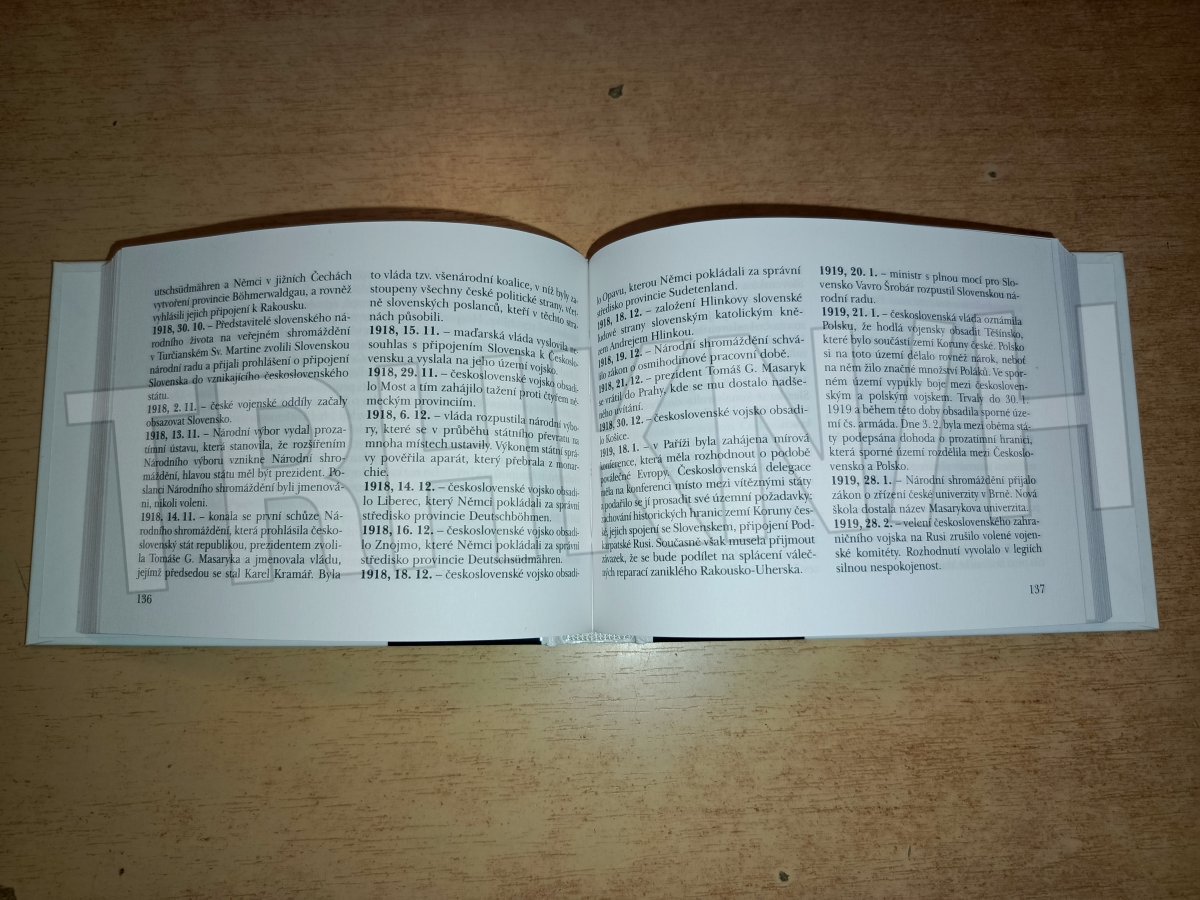 utschsüdmähren a Němci v jižních Čechách
vytvoření provincie Böhmerwaldgau, a rovněž
vyhlásili jejich připojení k Rakousku.
1918, 30. 10. – Představitelé slovenského ná-
rodního života na veřejném shromáždění
v Turčianském Sv. Martine zvolili Slovenskou
národní radu a přijali prohlášení o připojení
Slovenska do vznikajícího československého
státu.
1918, 2. 11. – české vojenské oddíly začaly
obsazovat Slovensko.
1918, 13. 11. – Národní výbor vydal proza-
tímní ústavu, která stanovila, že rozšířením
Národního výboru vznikne Národní shro-
máždění, hlavou státu měl být prezident. Po-
slanci Národního shromáždění byli jmenová-
ni, nikoli voleni.
1918, 14. 11. – konala se první schůze Ná-
rodního shromáždění, která prohlásila česko-
slovenský stát republikou, prezidentem zvoli-
la Tomáše G. Masaryka a jmenovala vládu,
jejímž předsedou se stal Karel Kramář. Byla
136
to vláda tzv. všenárodní koalice, v níž byly za-
stoupeny všechny české politické strany, včet-
ně slovenských poslanců, kteří v těchto stra-
nách působili.
1918, 15. 11. – maďarská vláda vyslovila ne-
souhlas s připojením Slovenska k Českoslo-
vensku a vyslala na jeho území vojsko.
1918, 29. 11. – československé vojsko obsadi-
lo Most a tím zahájilo tažení proti čtyřem ně-
meckým provinciím.
1918, 6. 12. – vláda rozpustila národní výbo-
ry, které se v průběhu státního převratu na
mnoha místech ustavily. Výkonem státní sprá-
vy pověřila aparát, který přebrala z monar-
chie.
1918, 14. 12. – československé vojsko obsadi-
lo Liberec, který Němci pokládali za správní
středisko provincie Deutschböhmen.
1918, 16. 12. – československé vojsko obsadi-
lo Znojmo, které Němci pokládali za správní
středisko provincie Deutschsüdmähren.
1918, 18. 12. – československé vojsko obsadi-
lo Opavu, kterou Němci pokládali za správní
středisko provincie Sudetenland.
1918, 18. 12. – založení Hlinkovy slovenské
ľudové strany slovenským katolickým kně-
zem Andrejem Hlinkou.
1918, 19. 12. – Národní shromáždění schvá-
lilo zákon o osmihodinové pracovní době.
1918, 21. 12. – prezident Tomáš G. Masaryk
se vrátil do Prahy, kde se mu dostalo nadše-
ného uvítání.
1918, 30. 12. – československé vojsko obsadi-
lo Košice.
1919, 18. 1. – v Paříži byla zahájena mírová
konference, která měla rozhodnout o podobě
poválečné Evropy. Československá delegace
měla na konferenci místo mezi vítěznými státy
a podařilo se jí prosadit své územní požadavky:
zachování historických hranic zemí Koruny čes-
ké, jejich spojení se Slovenskem, připojení Pod-
karpatské Rusi. Současně však musela přijmout
závazek, že se bude podílet na splácení váleč-
ných reparací zaniklého Rakousko-Uherska.
1919, 20. 1. – ministr s plnou mocí pro Slo-
vensko Vavro Šrobár rozpustil Slovenskou ná-
rodní radu.
1919, 21. 1. – československá vláda oznámila
Polsku, že hodlá vojensky obsadit Těšínsko,
které bylo součástí zemí Koruny české. Polsko
si na toto území dělalo rovněž nárok, neboť
na něm žilo značné množství Poláků. Ve spor-
ném území vypukly boje mezi českosloven-
ským a polským vojskem. Trvaly do 30. 1.
1919 a během této doby obsadila sporné úze-
mí čs. armáda. Dne 3. 2. byla mezi oběma stá-
ty podepsána dohoda o prozatímní hranici,
která sporné území rozdělila mezi Českoslo-
vensko a Polsko.
1919, 28. 1. – Národní shromáždění přijalo
zákon o zřízení české univerzity v Brně. Nová
škola dostala název Masarykova univerzita.
1919, 28. 2. – velení československého zahra-
ničního vojska na Rusi zrušilo volené vojen-
ské komitéty. Rozhodnutí vyvolalo v legiích
silnou nespokojenost.
137
TRHKNIH